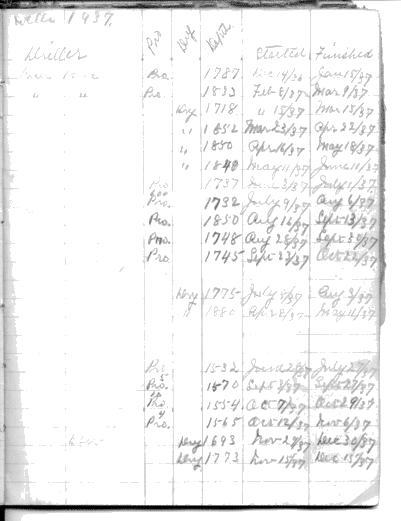 Wells 1937.
Driller Pro Dry Depth Started Finished
Pro. 1787 Dec 14/36 Jan 15/37
" " Pro. 1833 Feb 5/37 Mar 9/37
Dry 1718 " 15/37 Mar 15/37
" 1852 Mar 23/37 Apr 22/37
" 1850 Apr 16/37 May 18/37
" 1840 May 11/37 June 11/37
Pro 1737 June 3/37 July 1/37
Pro. 1732 July 9/37 Aug 6/37
Pro. 1850 Aug 16/37 Sept 13/37
Pro. 1748 Aug 28/37 Sept 30/37
Pro 1745 Sept 23/37 Oct 22/37
Dry 1775 July 5/37 Aug 3/37
" 1880 Apr 28/37 May 26/37
Pro 1532 June 28/37 July 27/37
Pro. 1570 Sept 3/37 Sept 27/37
Pro. 1554 Oct 7/37 Oct 29/37
Pro. 1565 Oct 12/37 Nov 6/37
Dry 1693 Nov 29/37 Dec 30/37
Dry 1773 Nov 15/37 Dec 15/37